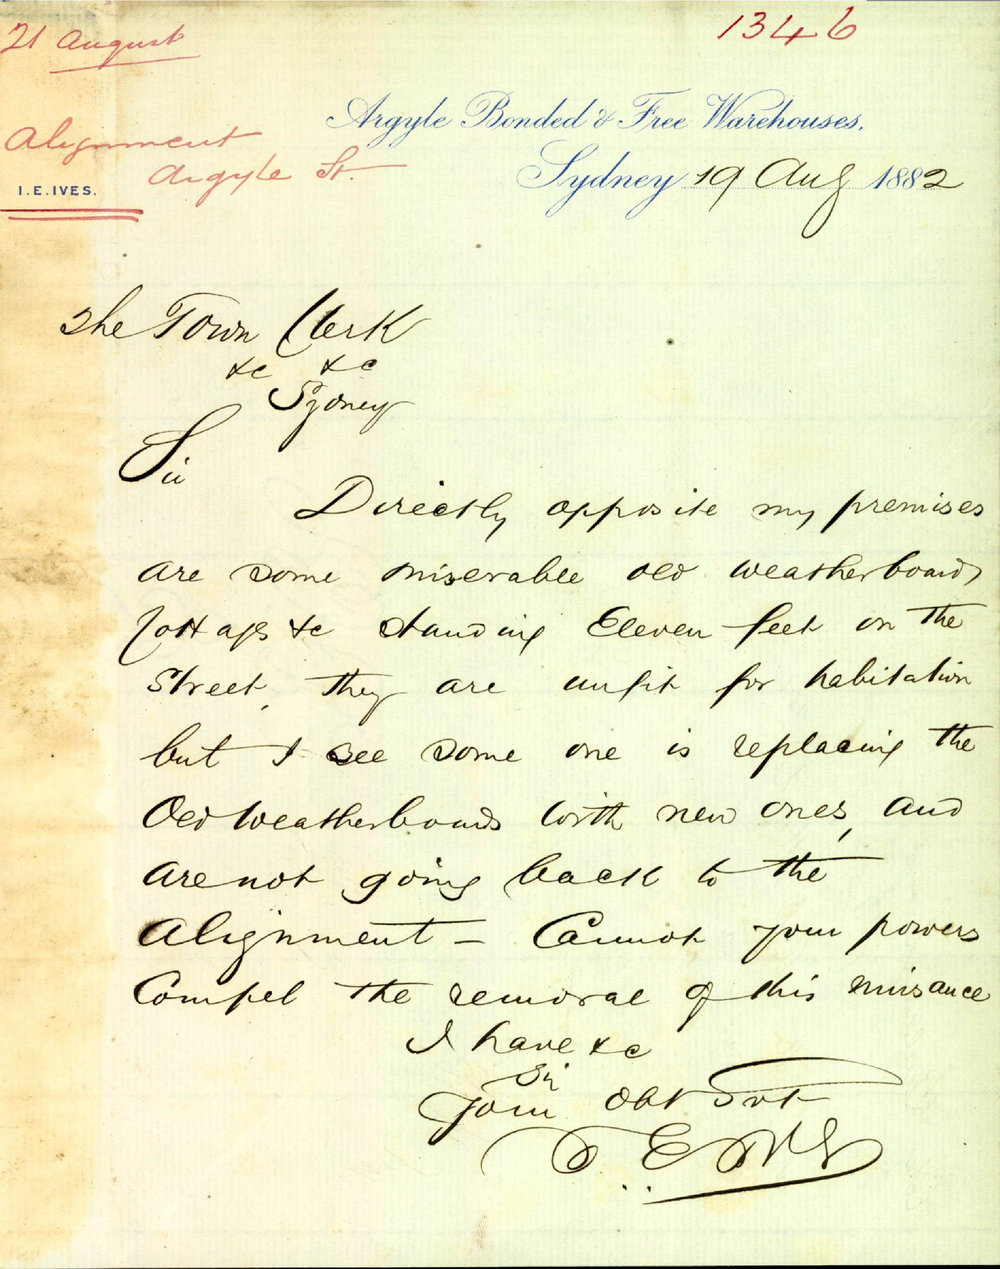 21 August
1346
Alignment
Argyle St.
I.E.IVES.
Argyle Bonded & Free Warehouses.
Sydney 19 Aug 1882
The Town Clerk
&c &c
Sydney
Sir
Directly opposite my premises
are some miserable old weatherboard
Cottages &c standing Eleven feet on the
Street, they are unfit for habitation
but I see some one is replacing the
Old Weatherboards with new ones, and
are not going back to the
Alignment – Cannot your powers
Compel the removal of this nuisance
I have &c
Sir
Your Obt Svt
I. E. Ives